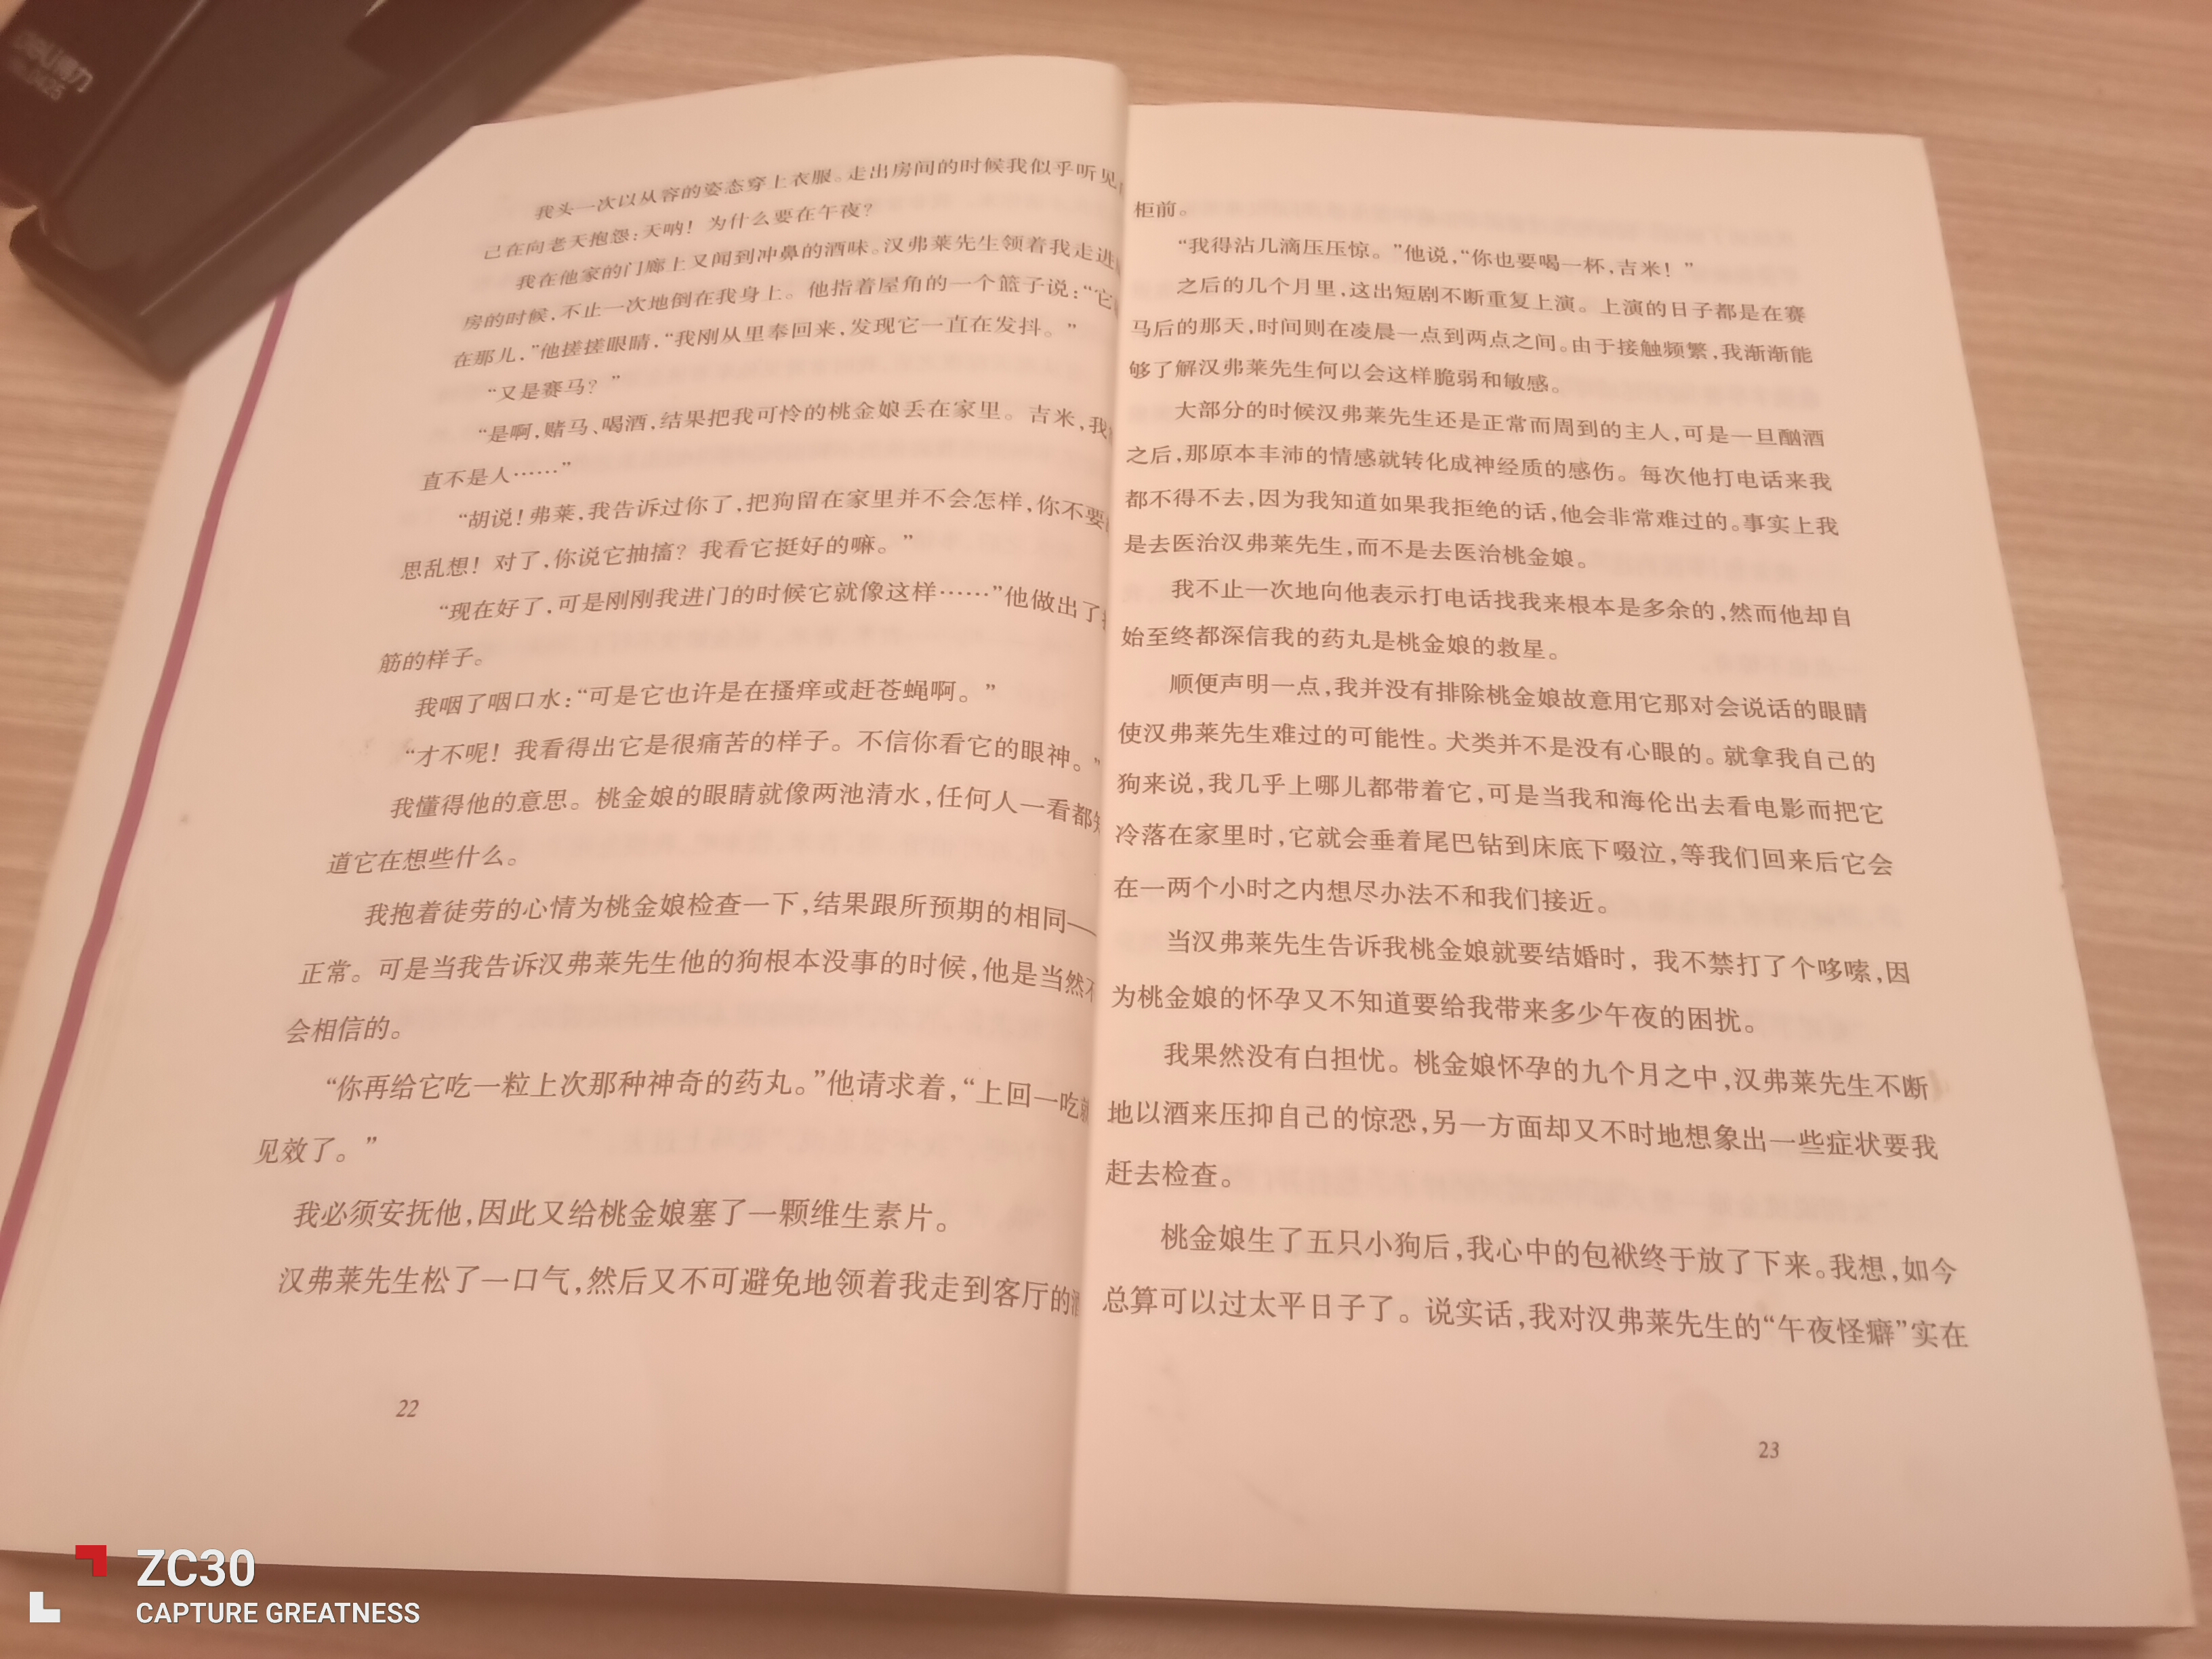 deli得力
我头一次以从容的姿态穿上衣服。走出房间的时候我似乎听见
己在向老天抱怨:天呐！为什么要在午夜？
我在他家的门廊上又闻到冲鼻的酒味。汉弗莱先生领着我走进
房的时候,不止一次地倒在我身上。他指着屋角的一个篮子说:“它
在那儿,”他搓搓眼睛,“我刚从里奉回来,发现它一直在发抖。”
“又是赛马？”
“是啊,赌马、喝酒,结果把我可怜的桃金娘丢在家里。吉米,我
直不是人……”
“胡说！弗莱,我告诉过你了,把狗留在家里并不会怎样,你不要
思乱想！对了,你说它抽搐？我看它挺好的嘛。”
“现在好了,可是刚刚我进门的时候它就像这样……”他做出了
筋的样子。
我咽了咽口水:“可是它也许是在搔痒或赶苍蝇啊。”
“才不呢！我看得出它是很痛苦的样子。不信你看它的眼神。”
我懂得他的意思。桃金娘的眼睛就像两池清水,任何人一看都知
道它在想些什么。
我抱着徒劳的心情为桃金娘检查一下,结果跟所预期的相同—
正常。可是当我告诉汉弗莱先生他的狗根本没事的时候,他是当然不
会相信的。
“你再给它吃一粒上次那种神奇的药丸。”他请求着,“上回一吃就
见效了。”
我必须安抚他,因此又给桃金娘塞了一颗维生素片。
汉弗莱先生松了一口气,然后又不可避免地领着我走到客厅的酒
22
柜前。
“我得沾几滴压压惊。”他说,“你也要喝一杯,吉米！”
之后的几个月里,这出短剧不断重复上演。上演的日子都是在赛
马后的那天,时间则在凌晨一点到两点之间。由于接触频繁,我渐渐能
够了解汉弗莱先生何以会这样脆弱和敏感。
大部分的时候汉弗莱先生还是正常而周到的主人,可是一旦酗酒
之后,那原本丰沛的情感就转化成神经质的感伤。每次他打电话来我
都不得不去,因为我知道如果我拒绝的话,他会非常难过的。事实上我
是去医治汉弗莱先生,而不是去医治桃金娘。
我不止一次地向他表示打电话找我来根本是多余的,然而他却自
始至终都深信我的药丸是桃金娘的救星。
顺便声明一点,我并没有排除桃金娘故意用它那对会说话的眼睛
使汉弗莱先生难过的可能性。犬类并不是没有心眼的。就拿我自己的
狗来说,我几乎上哪儿都带着它,可是当我和海伦出去看电影而把它
冷落在家里时,它就会垂着尾巴钻到床底下啜泣,等我们回来后它会
在一两个小时之内想尽办法不和我们接近。
当汉弗莱先生告诉我桃金娘就要结婚时,我不禁打了个哆嗦,因
为桃金娘的怀孕又不知道要给我带来多少午夜的困扰。
我果然没有白担忧。桃金娘怀孕的九个月之中,汉弗莱先生不断
地以酒来压抑自己的惊恐,另一方面却又不时地想象出一些症状要我
赶去检查。
桃金娘生了五只小狗后,我心中的包袱终于放了下来。我想,如今
总算可以过太平日子了。说实话,我对汉弗莱先生的“午夜怪癖”实在
23
ZC30
CAPTURE GREATNESS